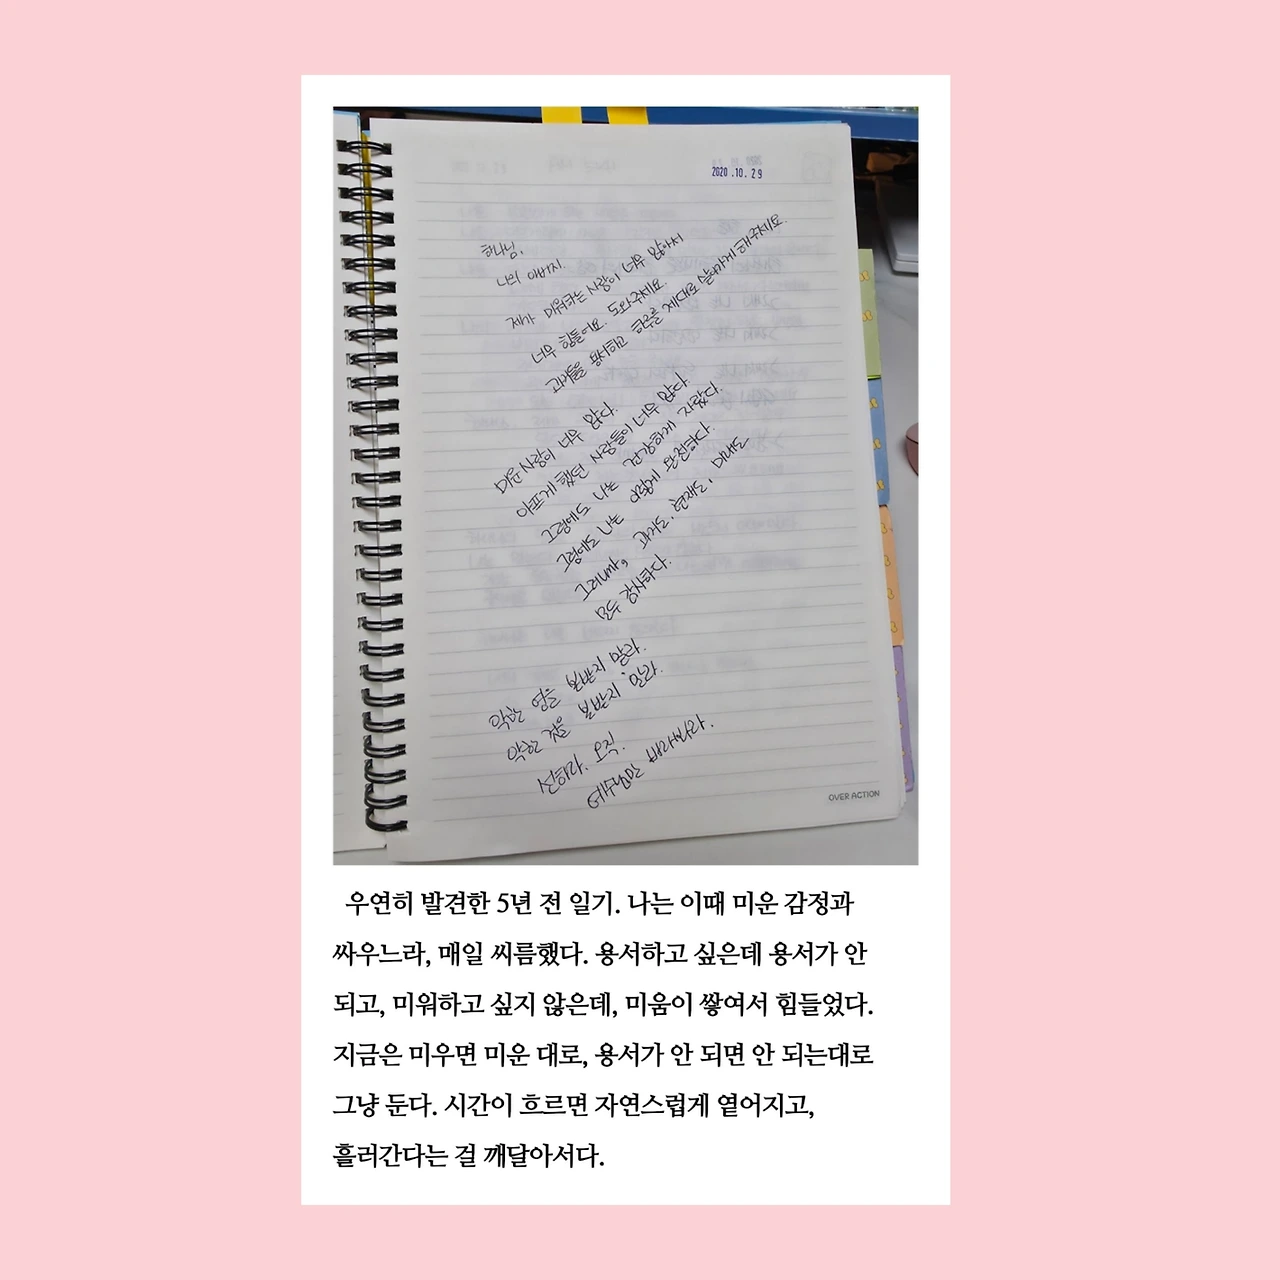 2020.10.29
하나님,
나의 아버지.
제가 미워하는 사람이 너무 많아서
너무 힘들어요. 도와주세요.
그들을 용서하고 하루를 제대로 살아가게 해주세요.
미운 사람이 너무 많다.
아프게 했던 사람들이 너무 많다.
그럼에도 나는 건강하게 자랐다.
그럼에도 나는 이렇게 완전하다.
그러니까, 과거도, 현재도, 미래도
모두 감사하다.
악한 영을 본받지 말라.
악한 것을 본받지 말라.
선하라. 오직.
예수만 바라봐라.
OVER ACTION
우연히 발견한 5년 전 일기. 나는 이때 미운 감정과
싸우느라, 매일 씨름했다. 용서하고 싶은데 용서가 안
되고, 미워하고 싶지 않은데, 미움이 쌓여서 힘들었다.
지금은 미우면 미운 대로, 용서가 안 되면 안 되는대로
그냥 둔다. 시간이 흐르면 자연스럽게 옅어지고,
흘러간다는 걸 깨달아서다.